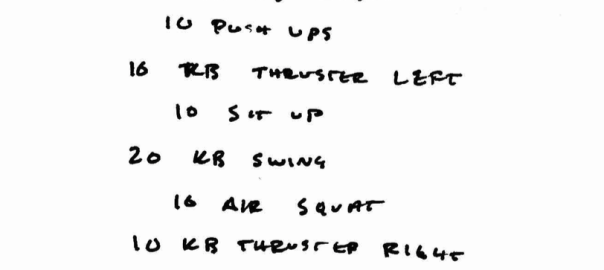 10 PUSH UPS
10 KB THRUSTER LEFT
10 SIT UP
20 KB SWING
10 AIR SQUAT
10 KB THRUSTER RIGHT